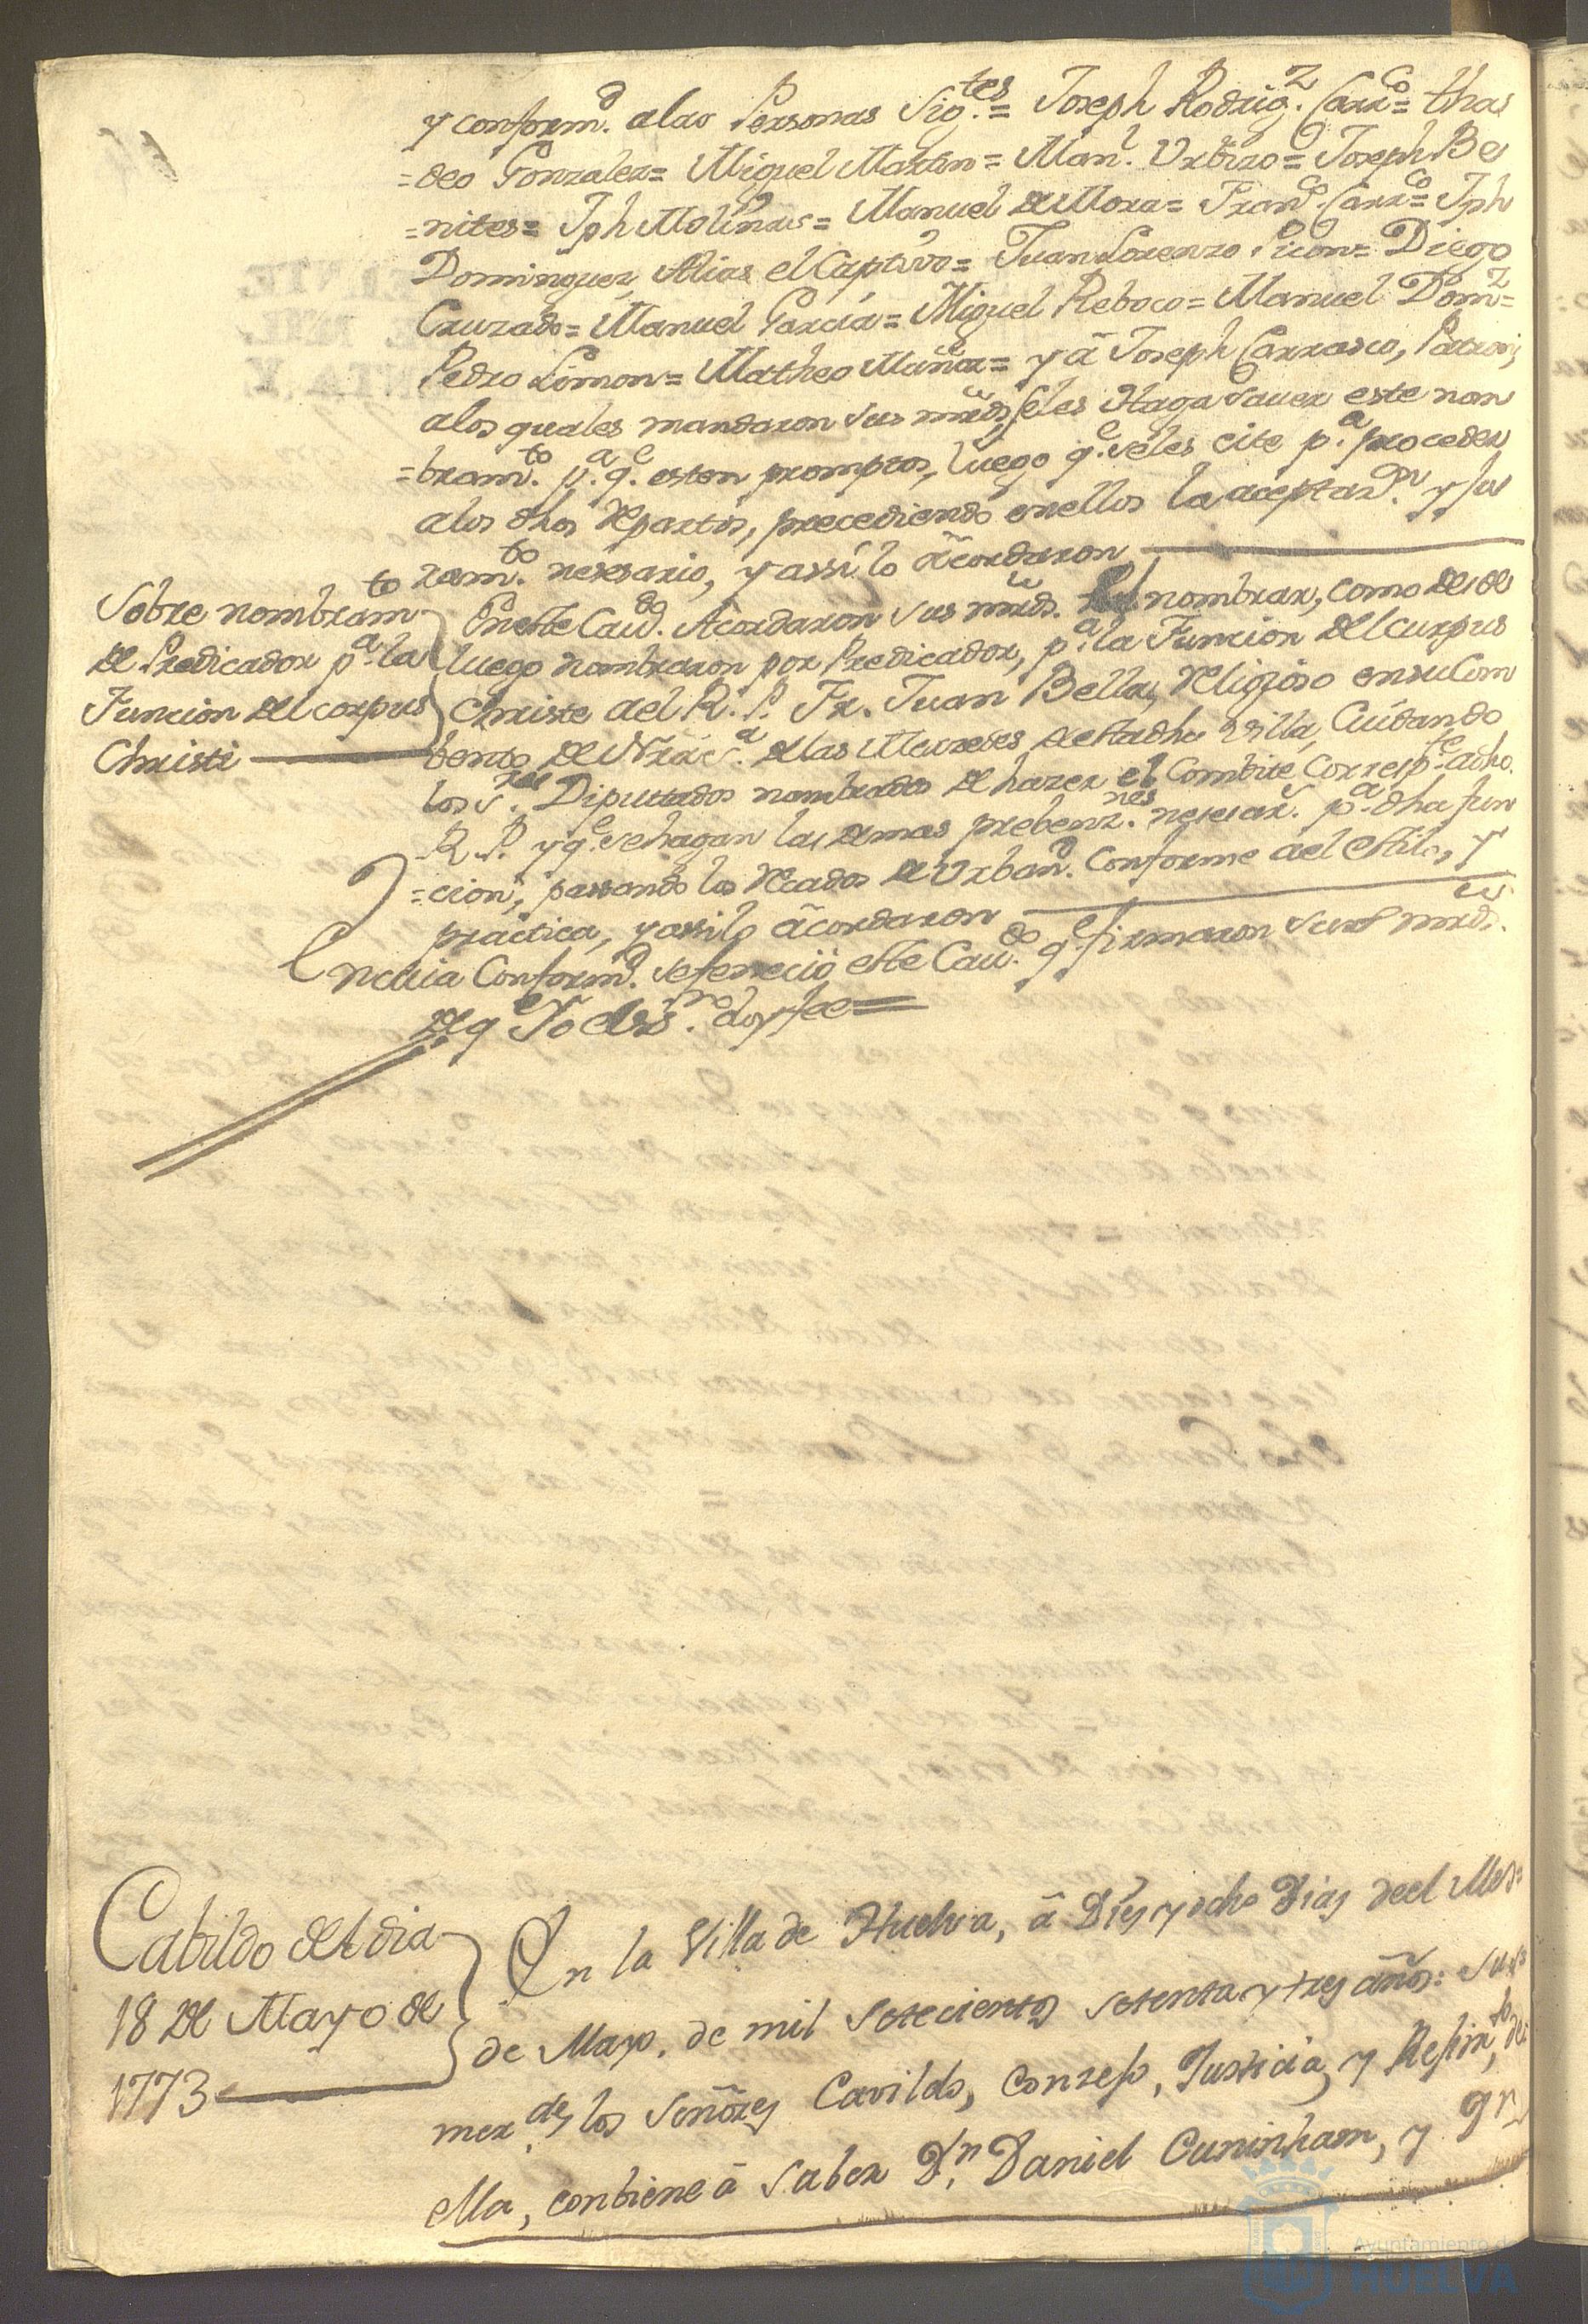 y conform.d alas Personas Sig.tes = Joseph Rodrig.z Carr.co = thas
=deo Gonzalez = Miguel Martin = Man.l Urbizo = Joseph Be
=nites = Jph Molina = Manuel de Mora = Fran.co Carr.co = Jph
Dominguez Alias el Captivo = Juan Lorenzo Picon = Diego
Cruzado = Manuel Garcia = Miguel Reboco = Manuel Dom.z =
Pedro Limon = Matheo Muñoz = y â Joseph Carrasco, Patron,
alos quales mandaron sus mrds, seles Haga Saver este nom
=bram.to p.a q.e esten promptos, luego q.e seles cite p.a proceder
alos dhos Repartos, precediendo enellos la aceptaz.on y ju
ram.to nesesario, y assi lo âcordaron
Sobre nombram.to
de Predicador p.a la
Funcion del corpus
Christi
En este Cau.do Acordaron sus mrds. nombrar, como desde
luego nombraron por Predicador, p.a la Funcion del Curpus
Christe al R. P. Fr. Juan Bella, Religioso en su Com
bento de Nrâ S.a de las Mersedes de esta dha Villa, Cuidando
los S.res Diputados nombrados de hazer el Combite Corresp.te a dho.
R. P. y q.e se hagan las demas prebenz.nes nesesar.s p.a dha fun
=cion, passando los Recados de Urban.d Conforme ael estilo, y
practica, y assi lo âcordaron
En cuia Conform.d sefenecio este Cau.do q.e firmaron sus mrds.
de q.e Yo el Ess.no doy fee =
Cabildo del dia
18 de Mayo de
1773
En la Villa de Huelva, â Diez y ocho Dias deel Mes
de Mayo. de mil setecientos setenta y tres años: sus
mer.des los Señores Cavildo, Conzejo, Justicia, y Rejim.to de
ella, conbiene â Saber D.n Daniel Cuninham, y
Ayuntamiento de
HUELVA